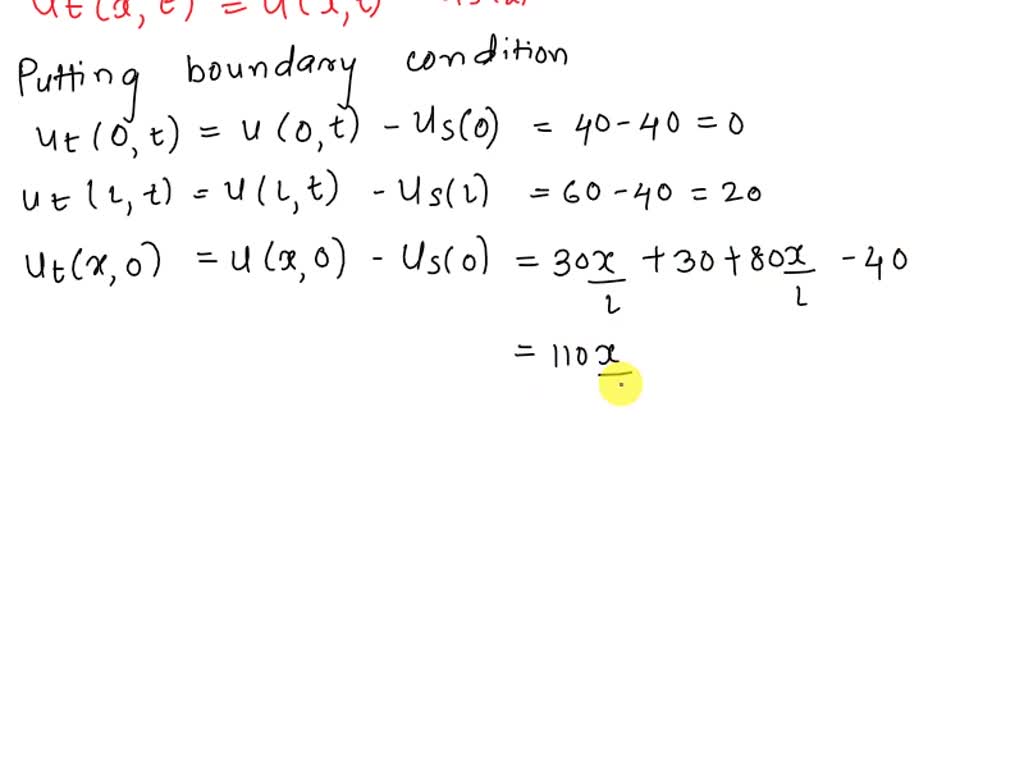 ut(x,t) = u(x,t)
Putting boundary condition
ut(0,t) = u(0,t) - us(0) = 40-40 = 0
ut(l,t) = u(l,t) - us(l) = 60-40 = 20
ut(x,0) = u(x,0) - us(0) = 30x/l + 30 + 80x/l - 40
= 110x